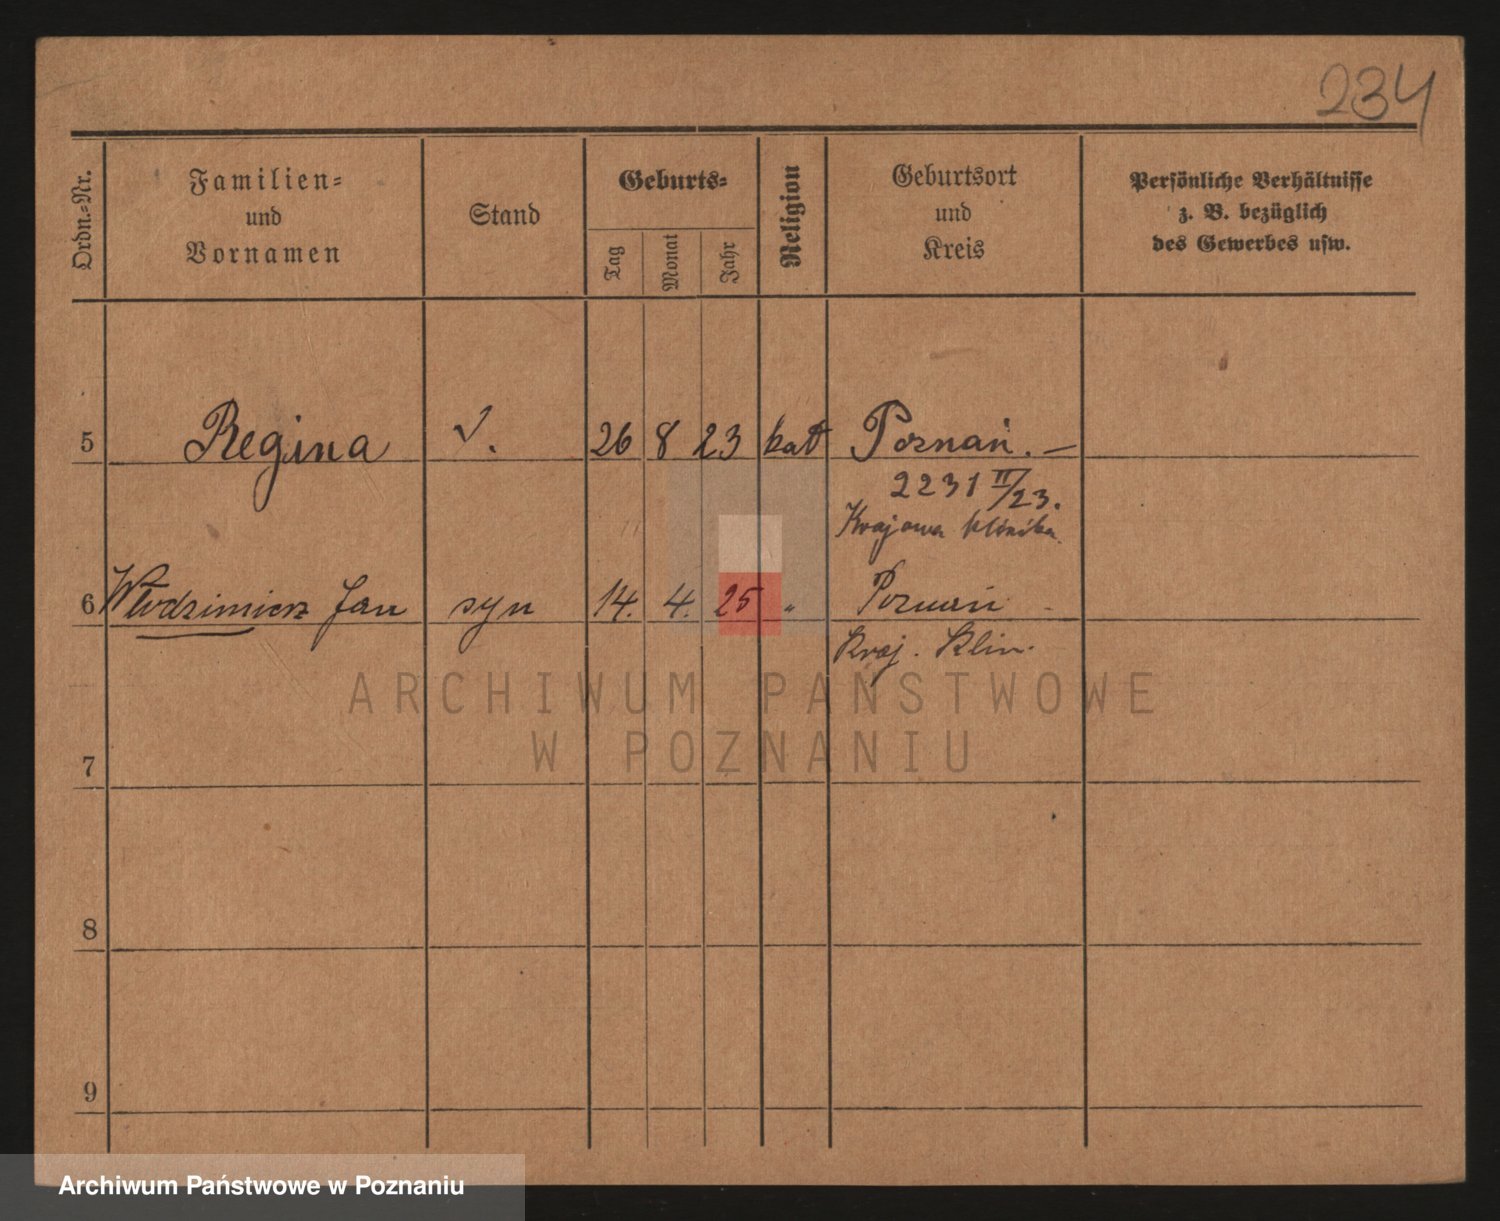 234
Ordn.=Nr.
Familien=
und
Vornamen
Stand
Geburts=
Tag
Monat
Jahr
Religion
Geburtsort
und
Kreis
Persönliche Verhältnisse
z. B. bezüglich
des Gewerbes usw.
5 Regina √. 26 8 23 kat Poznań. —
2231 II/23.
Krajowa klinika.
6 Włodzimierz Jan syn 14. 4. 25 „ Poznań -
Kraj. Klin.
ARCHIWUM PAŃSTWOWE
W POZNANIU
7
8
9
Archiwum Państwowe w Poznaniu